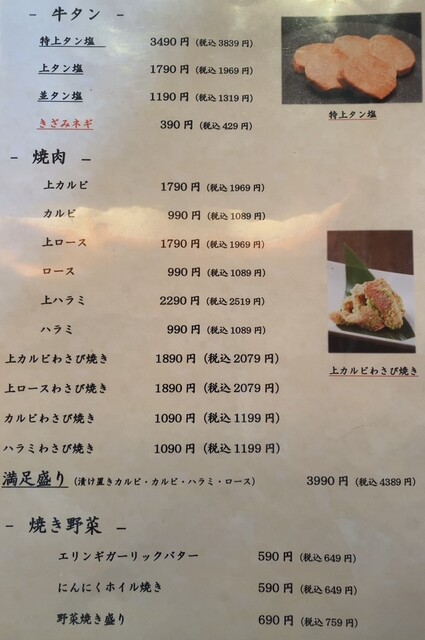 - 牛タン -
特上タン塩 3490円(税込3839円)
上タン塩 1790円(税込1969円)
並タン塩 1190円(税込1319円)
きざみネギ 390円(税込429円)
特上タン塩
- 焼肉 -
上カルビ 1790円(税込1969円)
カルビ 990円(税込1089円)
上ロース 1790円(税込1969円)
ロース 990円(税込1089円)
上ハラミ 2290円(税込2519円)
ハラミ 990円(税込1089円)
上カルビわさび焼き 1890円(税込2079円)
上ロースわさび焼き 1890円(税込2079円)
カルビわさび焼き 1090円(税込1199円)
ハラミわさび焼き 1090円(税込1199円)
上カルビわさび焼き
満足盛り(漬け置きカルビ・カルビ・ハラミ・ロース) 3990円(税込4389円)
- 焼き野菜 -
エリンギガーリックバター 590円(税込649円)
にんにくホイル焼き 590円(税込649円)
野菜焼き盛り 690円(税込759円)